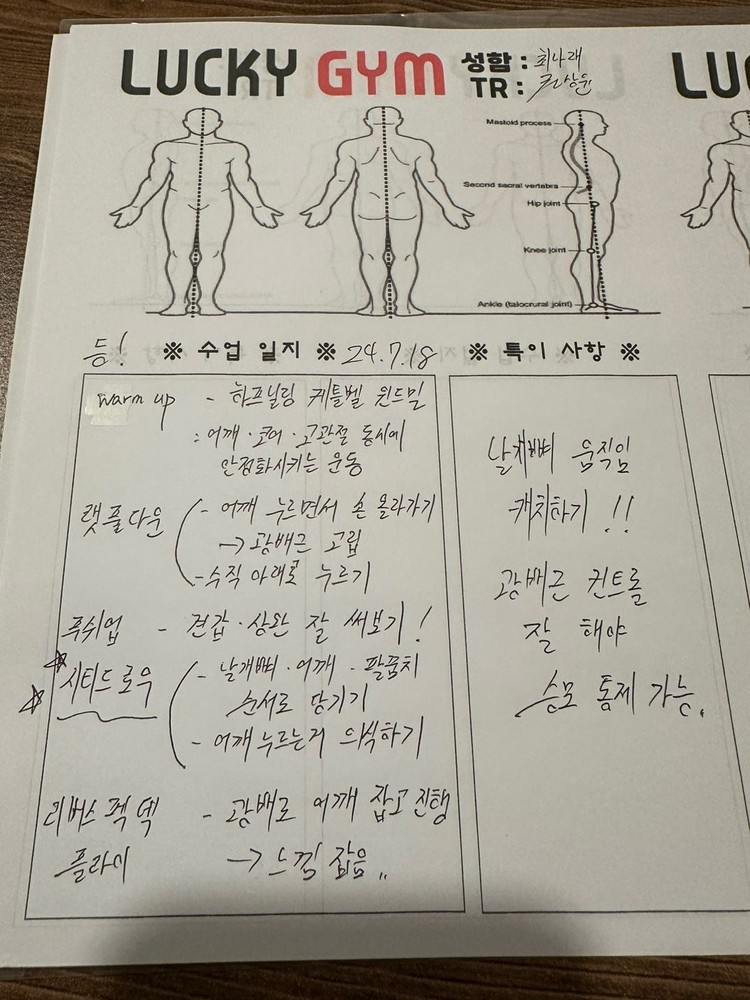 LUCKY GYM
성함 : 최나래
TR : 전상윤
LU
Mastoid process
Second sacral vertebra
Hip joint
Knee joint
Ankle (talocrural joint)
등! ※ 수업 일지 ※ 24.7.18
※ 특이 사항 ※
warm up - 하프닐링 케틀벨 윈드밀
: 어깨·코어·고관절 동시에
안정화시키는 운동
랫풀다운 - 어깨 누르면서 손 올라가기
→ 광배근 고립
- 수직 아래로 누르기
푸쉬업 - 견갑·상완 잘 써보기!
시티드로우 - 날개뼈·어깨·팔꿈치
순서로 당기기
- 어깨누르는거 의식하기
리버스 펙 덱 - 광배로 어깨 잡고 진행
플라이 → 느낌 잡음..
날개뼈 움직임
캐치하기!!
광배근 컨트롤
잘 해야
승모 통제 가능.